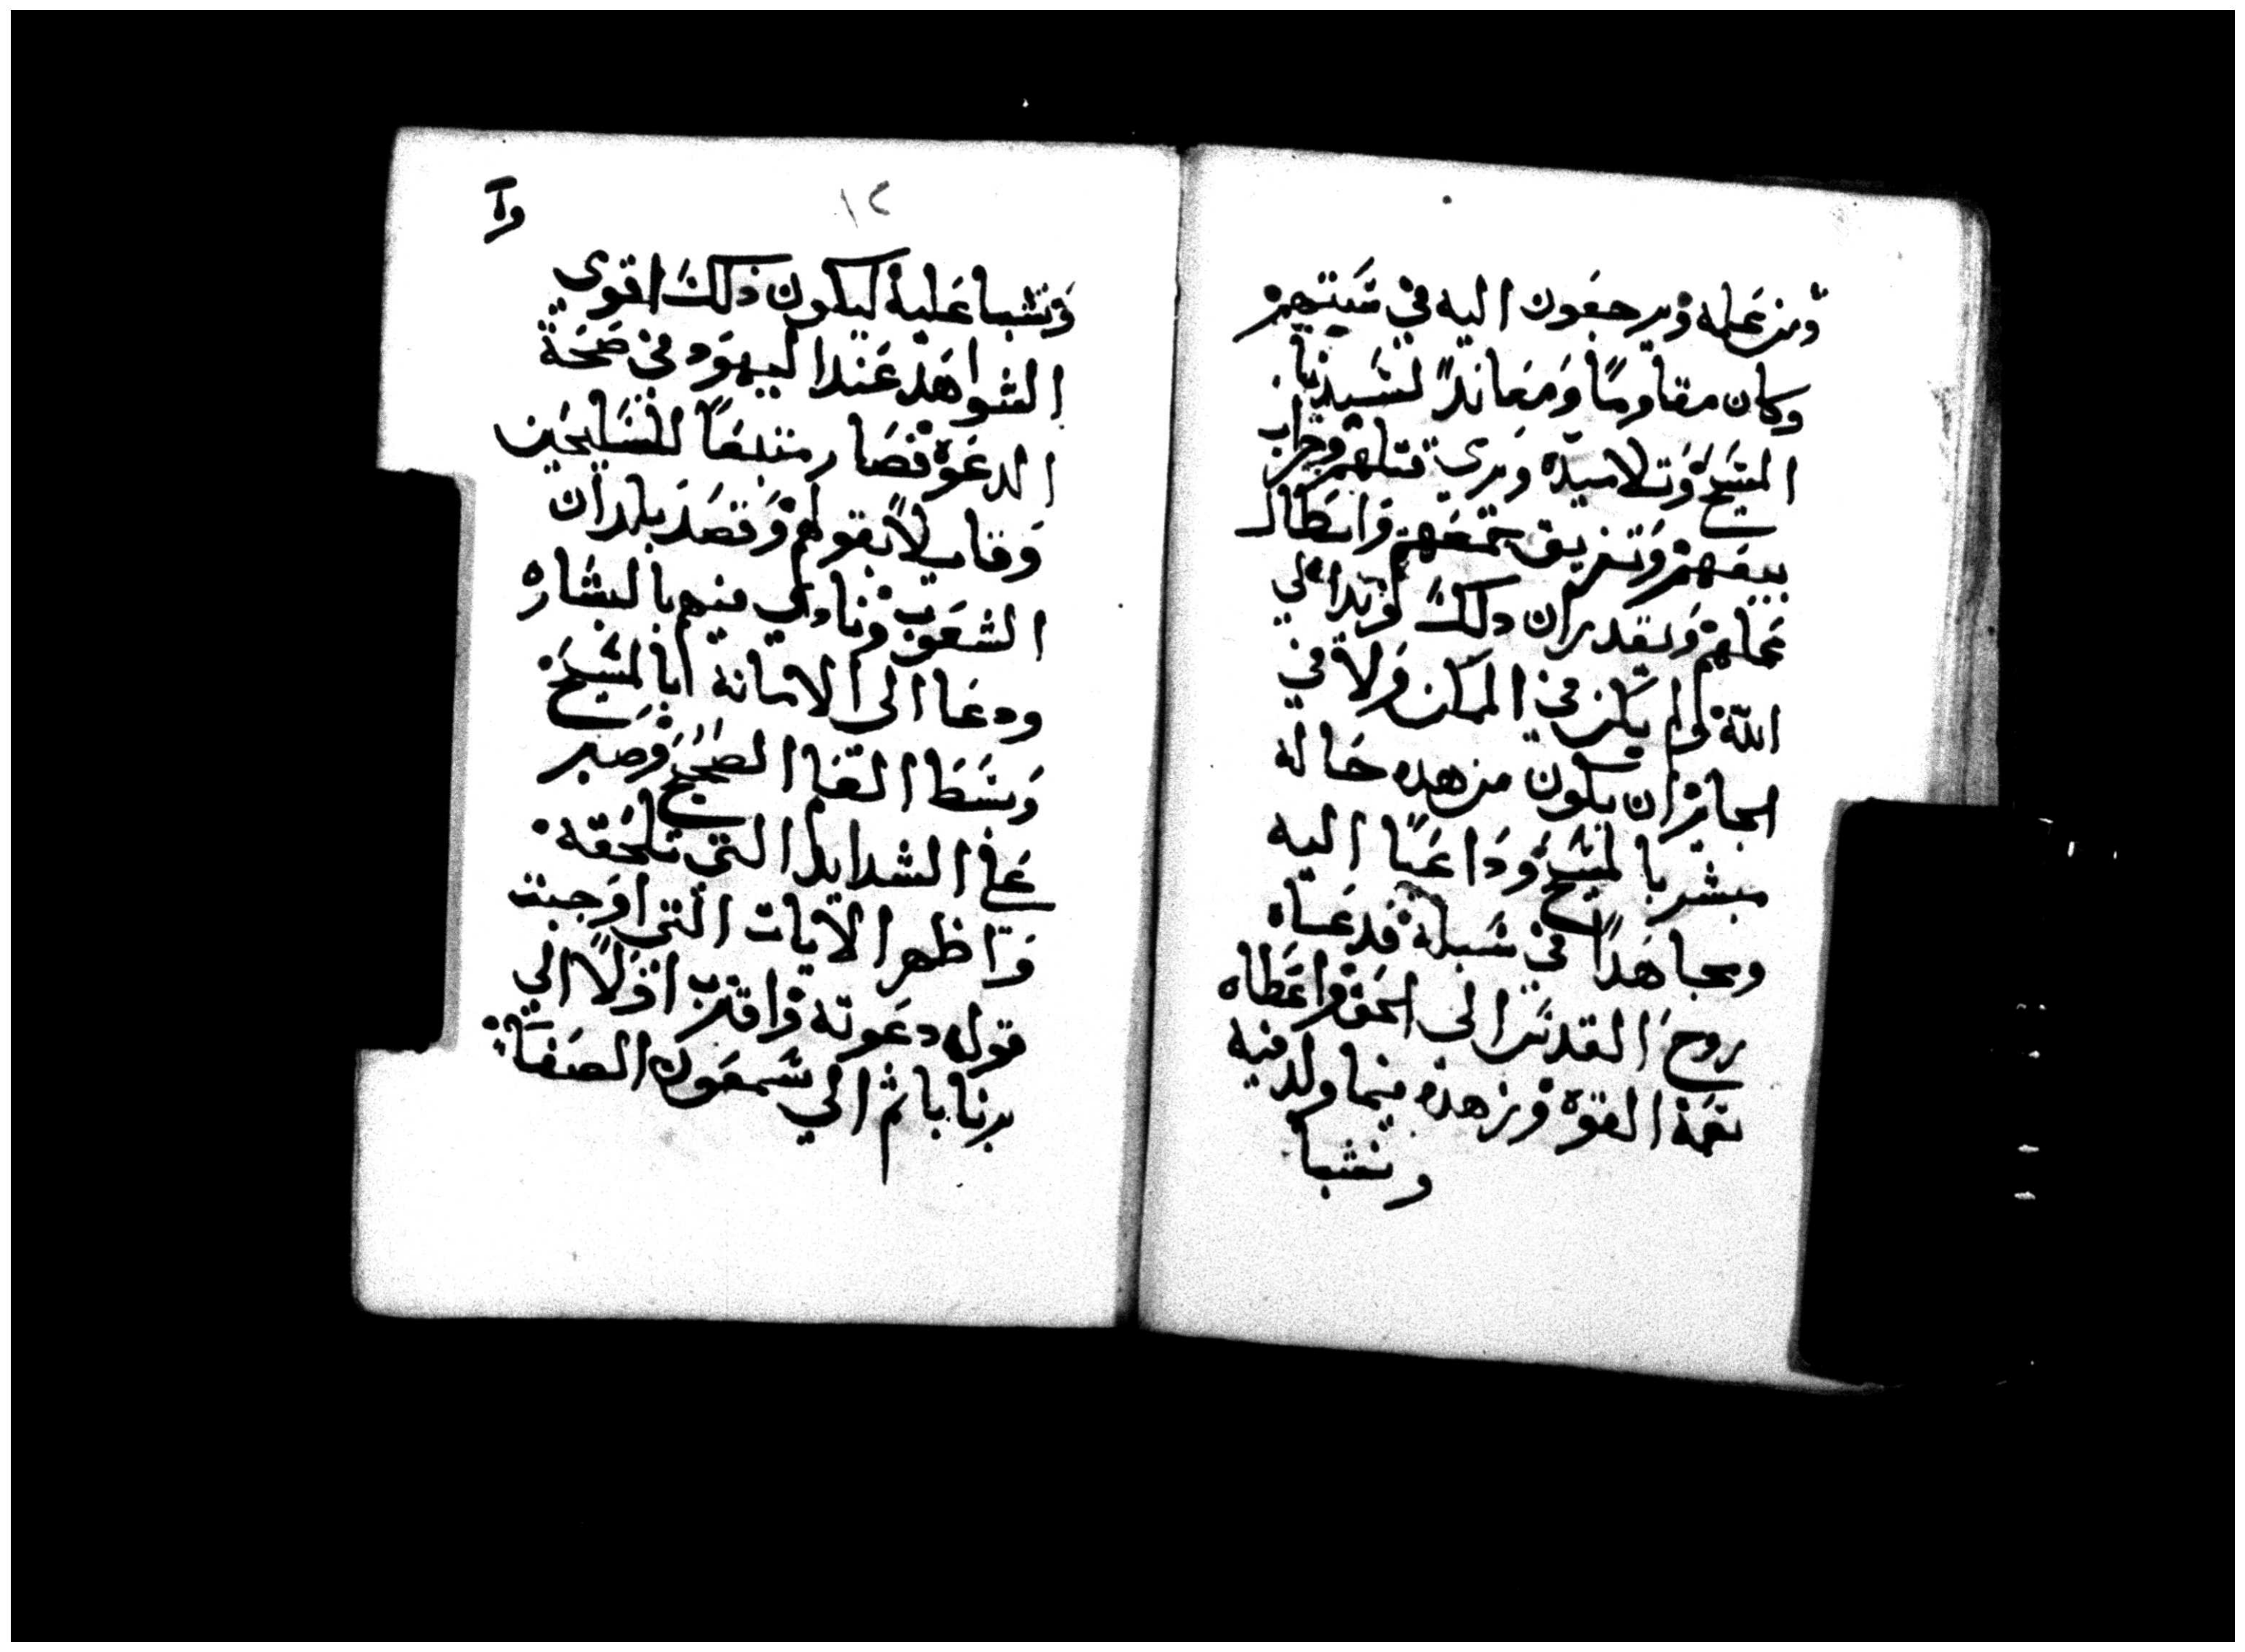 ومن عمله ويرجعون اليه في شيتهم
وكان مقاومًا ومعاندًا لسيدنا
المسيح وتلاميده ويري قتلهم وخراب
بيعهم وتفريق جمعهم وابطال
عملهم ويقدر ان دلك لوندا لي
الله فلم يكن في الممكن ولا في
الجايز ان يكون من هده حاله
مبشر بالمسيح وداعيًا اليه
ومجاهدًا في سبيله فدعاه
روح القدس الى الحق واعطاه
نعمة القوة ومن هده فيما ولد فيه
ونشبا
١٢
ونشبا عليه ليكون ذلك اقوي
الشواهد عند اليهود في صحة
الدعوة فصار متبعًا للسليحين
وقايلاً بقولهم وقصد بلدان
الشعوب ونادي فيهم بالبشاره
ودعا الى الامانة بالمسيح
وبسط القا الصحيح وصبر
على الشدايد التي تلحقه
واظهر الايات التي اوجبت
قوله دعوته واقترب اولًا الي
برنابا ثم الي شمعون الصفا